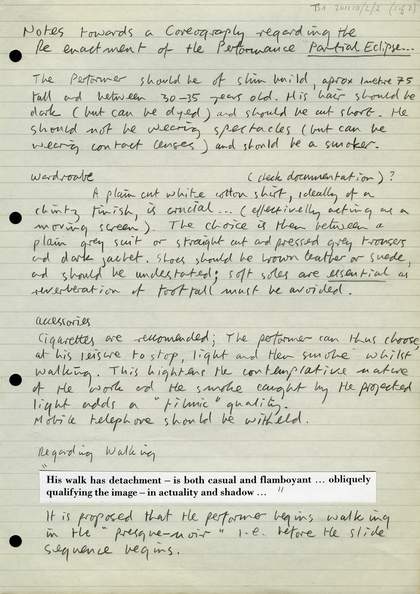 TGA 201110/2/2 (1 of 2)
Notes towards a Coreography regarding the
Re enactment of the Performance Partial Eclipse...
The Performer should be of slim build, aprox 1 metre 75
tall and between 30-35 years old. His hair should be
dark (but can be dyed) and should be cut short. He
should not be wearing spectacles (but can be
wearing contact lenses) and should be a smoker.
Wardroabe (check documentation)?
A plain cut white cotton shirt, ideally of a
chintz finish, is crucial... (effectivelly acting as a
moving screen). The choice is then between a
plain grey suit or straight cut and pressed grey trousers
and dark jacket. Shoes should be brown leather or suede,
and should be understated; soft soles are essential as
reverberation of footfall must be avoided.
accessories
Cigarettes are recommended; The performer can thus choose,
at his leisure to stop, light and then smoke whilst
walking. This hightens the contemplative nature
of the work and the smoke caught by the projected
light adds a "filmic" quality.
Mobile telephone should be witheld.
Regarding Walking
"His walk has detachment – is both casual and flamboyant ... obliquely
qualifying the image – in actuality and shadow ... "
It is proposed that the performer begins walking
in the "presque-noir" i.e. before the slide
sequence begins.